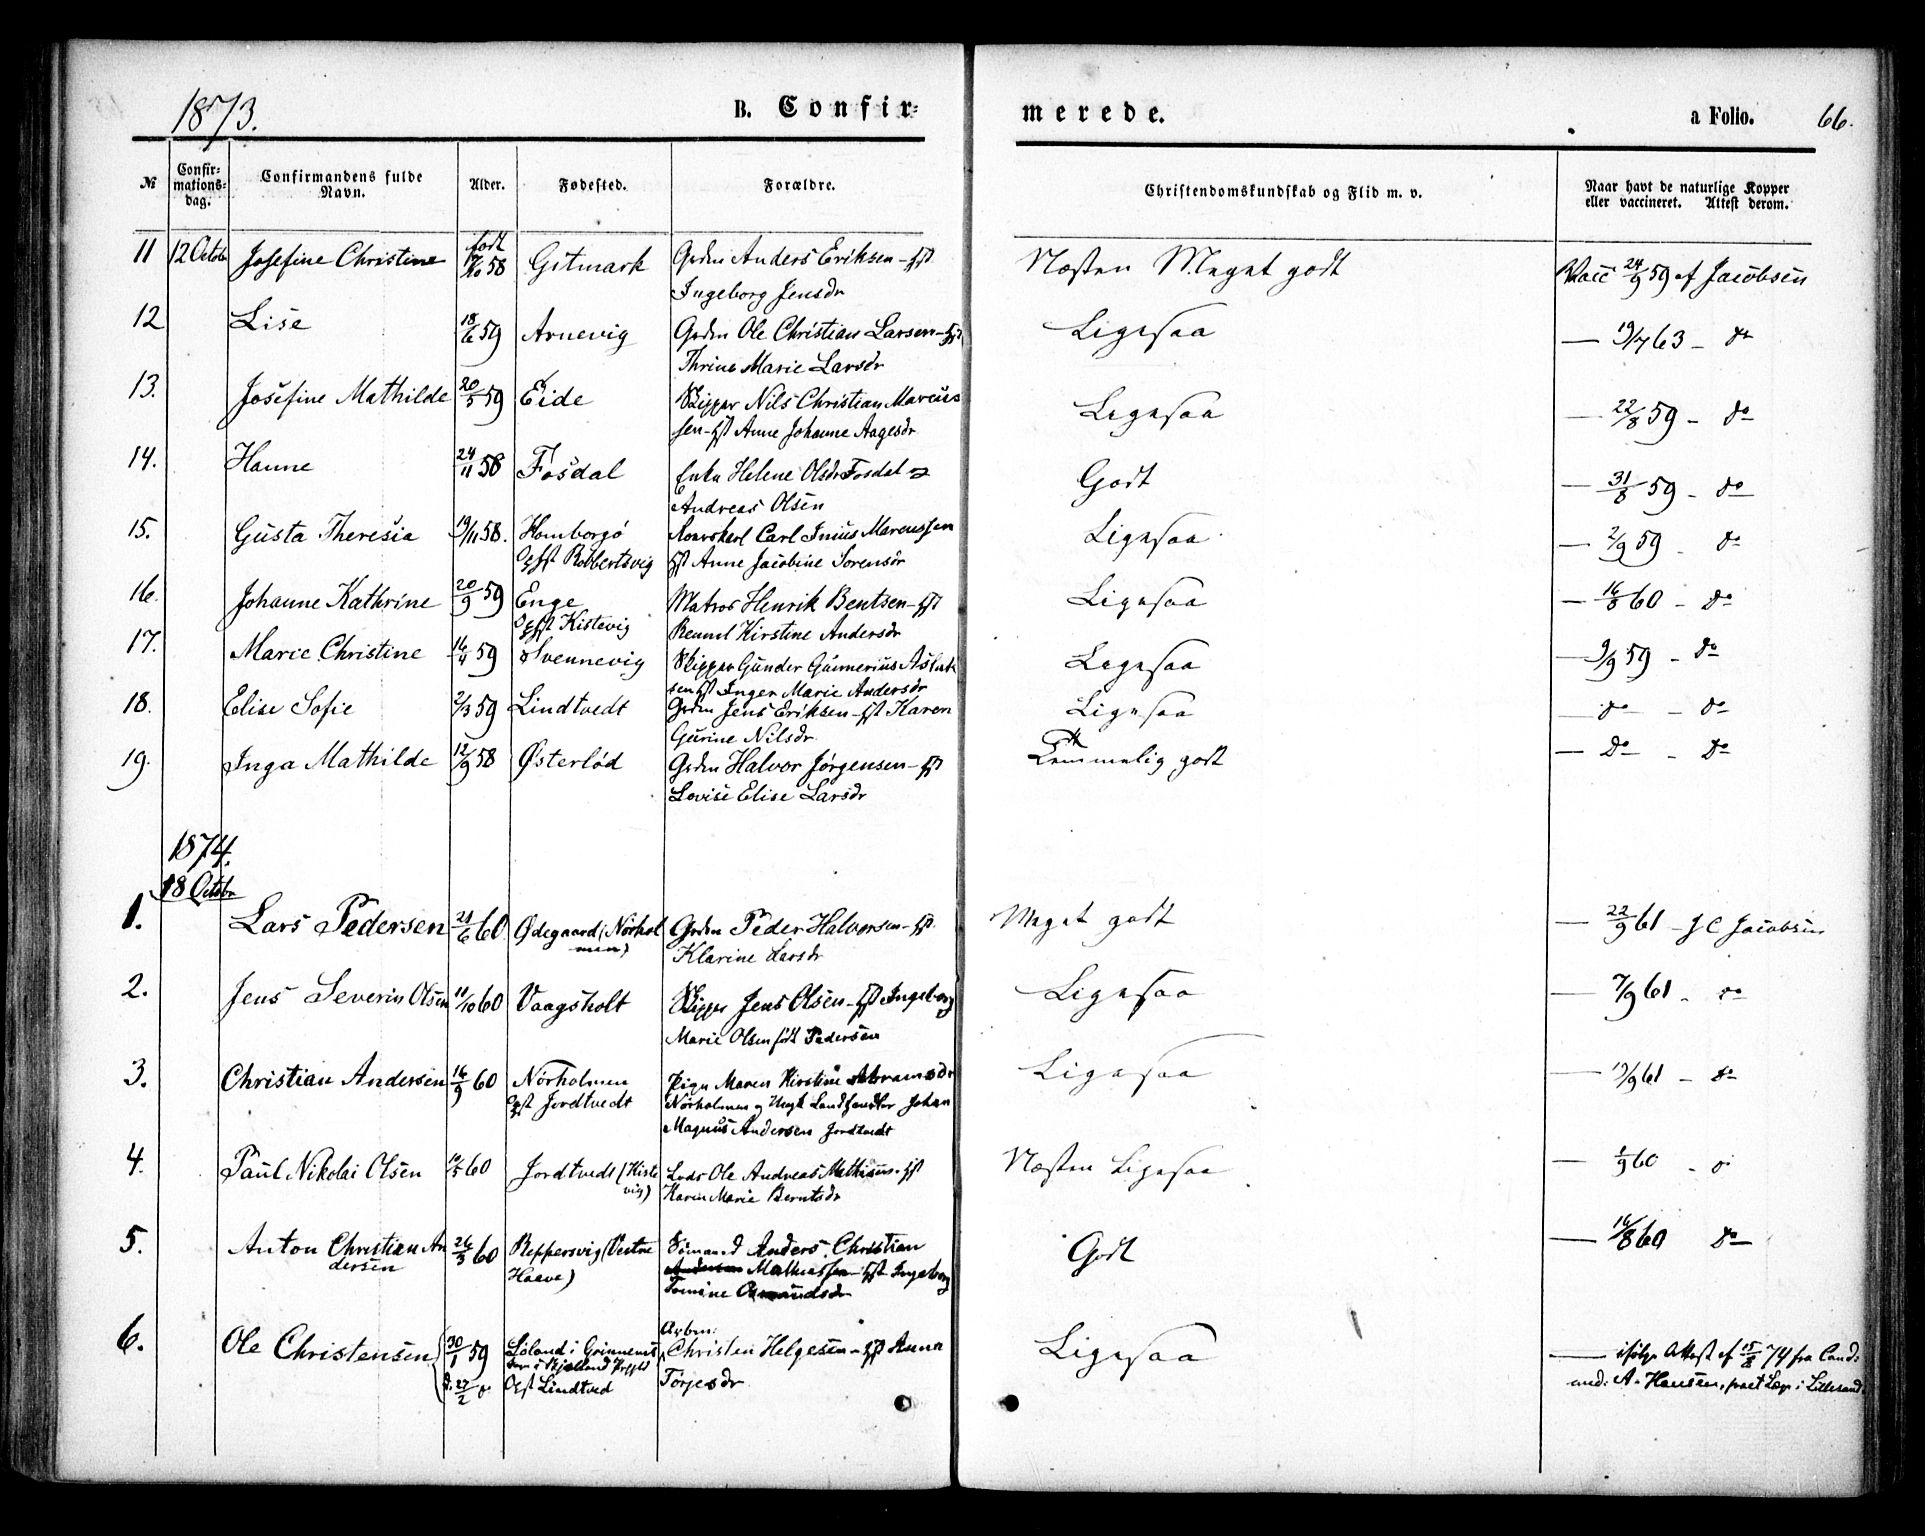 1873.
B. Confir=
merede.
a Folio. 66.
№ Confir-mations-dag. Confirmandens fulde Navn. Alder. Fødested. Forældre. Christendomskundskab og Flid m. v. Naar havt de naturlige Kopper eller vaccineret. Attest derom.
11 12 Octobr Josefine Christine født /10 58 Gitmark Grdm Anders Eriksen - Hst Næsten Meget godt Vacc 24/9 59 af Jacobsen
Ingeborg Jensdr
12 Lise 18/6 59 Arnevig Grdm Ole Christian Larsen - Hst Ligesaa — 19/7 63 - do
Thrine Marie Larsdr
13. Josefine Mathilde 20/5 59 Eide Skipper Nils Christian Marcus Ligesaa — 22/8 59 - do
sen - Hst Anne Johanne Aagesdr
14. Hanne 24/11 58 Fosdal Enke Helene Olsdr Fosdal og Godt — 31/8 59 - do
Andreas Olsen
15. Gusta Theresia 19/11 58. Homborgø Carl Junius Marcussen Ligesaa — 2/9 59 - do
Opfst Robbertsvig Hst Anne Jacobine Sorensdr
16. Johanne Kathrine 20/9 59 Enge Matros Henrik Bentsen - Hst Ligesaa — 16/8 60 - do
Opfst Kistevig Kirstine Andersdr
17. Marie Christine 16/4 59 Svennevig Skipper Gunder Gunnerius Aslak Ligesaa — 9/9 59 - do
sen Hst Inger Marie Andersdr
18. Elise Sofie 2/3 59 Lindtvedt Grdm Jens Eriksen - Hst Karen Ligesaa — do - do
Gurine Nilsdr
19. Inga Mathilde 12/9 58 Østerlød Grdm Halvor Jørgensen - Hst Temmelig godt — do - do
Lovise Elise Larsdr
1874.
18 Octobr
1. Lars Pedersen 21/6 60 Ødegaard (Nörhol Grdm Peder Halvorsen - Hst Meget godt — 22/9 61 - J C Jacobsen
men) Klarine Larsdr
2. Jens Severin Olsen 11/10 60 Vaagsholt Skipper Jens Olsen - Hst Ingeborg Ligesaa — 7/9 61 - do
Marie Olsen født Pedersen
3. Christian Andersen 16/9 60 Nörholmen Pige Maren Kirstine Abramsdr Ligesaa — 19/9 61 - do
Opst Jordtvedt Nörholmen og Ungk Landhandler Johan
Magnus Andersen Jordtvedt
4. Paul Nikolai Olsen /5 60 Jordtvedt (Kiste Lods Ole Andreas Mathisen - Hst Næsten Ligesaa — /9 60 -
vig) Karen Marie Berntsdr
5. Anton Christian An 26/3 60 Reppersvig (Vestre Sömand Anders Christian Godt — 16/8 60 do
dersen Haave) Andersen Mathiassen - Hst Ingeborg
Tomine Osmundsdr
6. Ole Christensen 30/1 59 Löland i Arbm: Christen Helgesen - Hst Anna Ligesaa — ifölge Attest af 15/8 74 fra Cand:
d. 27/2 Opst Lindtved Torjesdr med: A. Hansen, pract Læge i Lillesand